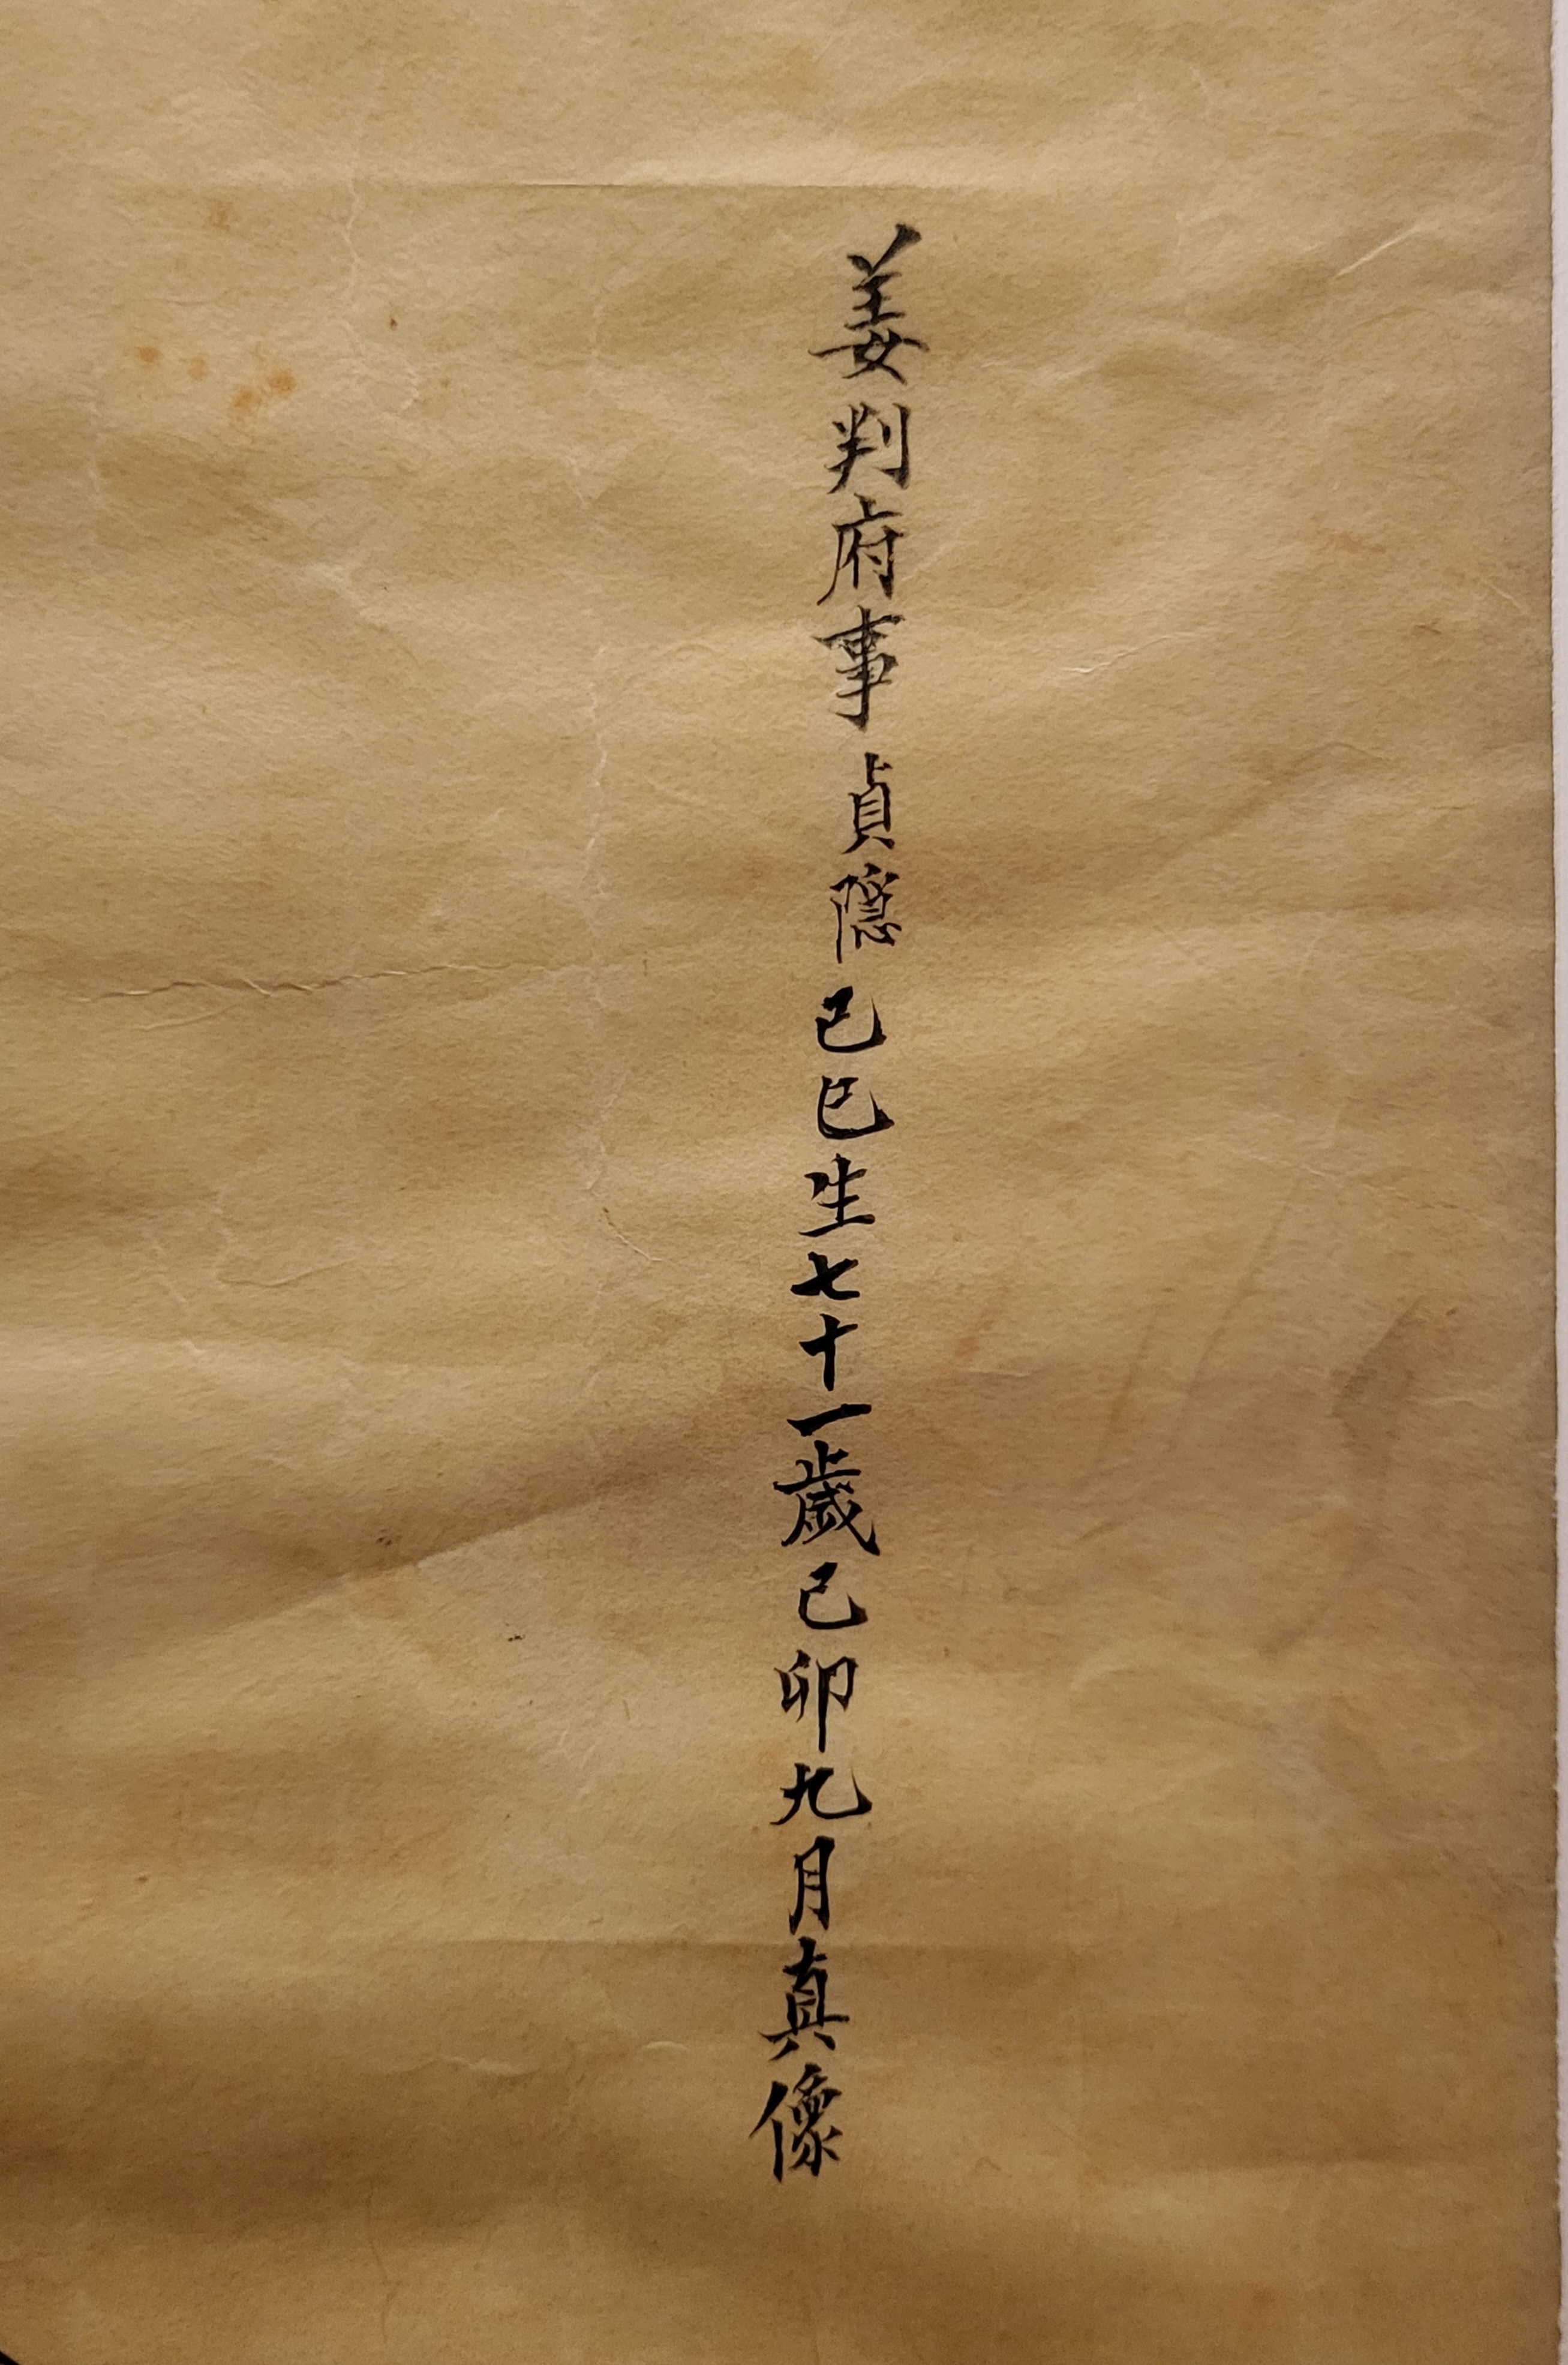 姜判府事貞隱己巳生七十一歲己卯九月真像